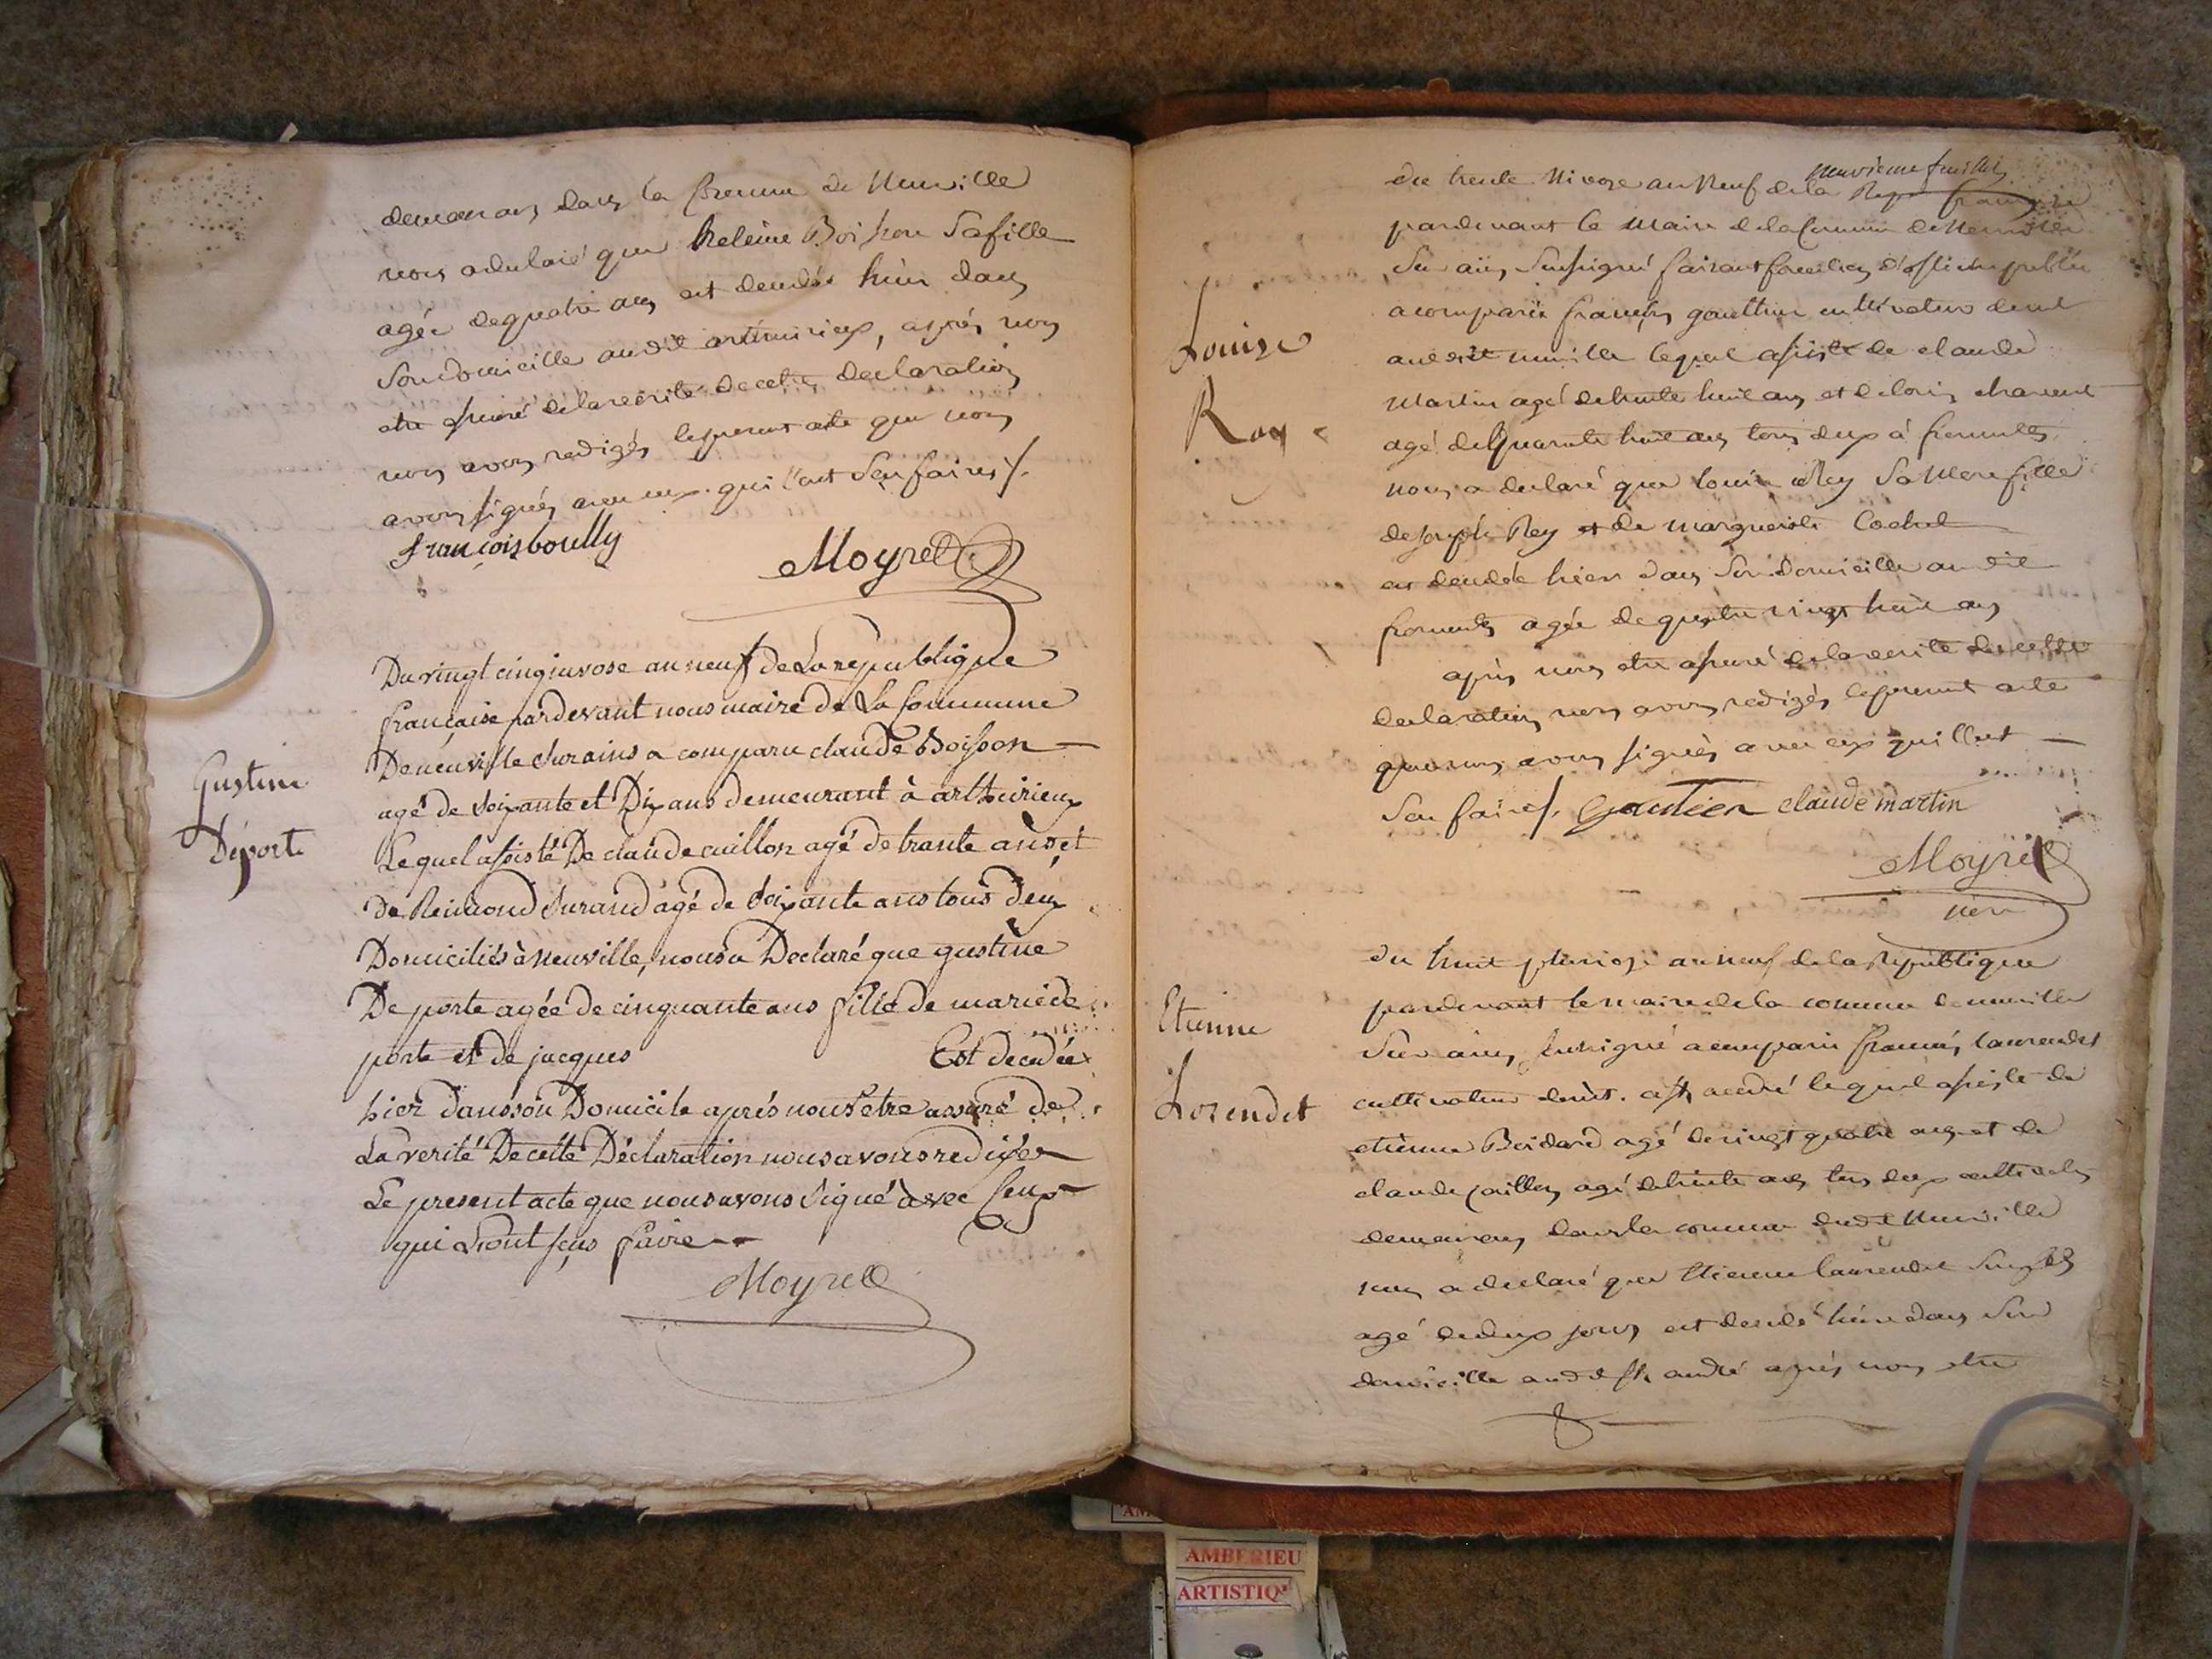 demeurans dans la Comune de Neuville
nous a declaré que heleine Boisson Sa fille
agée de quatre ans est decedée hier dans
Son domicille audit arthurieux, après nous
etre assuré de la verité de cette declaration
nous avons redigés le present acte que nous
avons signés avec eux qui l'ont Seu faires/.
françois boully
Moyret
Du vingt cinq nivose an neuf de La republique
française pardevant nous maire de La Commune
De neuville Sur ains a comparu claude Boisson
agé de Soixante et Dix ans demeurant à arthurieux
Gustine
Deporte
Lequel assisté De claude cuillon agé de trante ans et
De Reimond Durand agé de Soixante ans tous deux
Domiciliés à Neuville, nous a Declaré que gustine
De porte agée de cinquante ans fille de marie de
porte et de jacques Est decedée
hier dans son Domicile aprés nous etre assuré de
La verité De cette Déclaration nous avons redigés
Le present acte que nous avons Signé avec Ceux
qui L'ont sçus faire
Moyret
neuvieme feuillet
du trente Nivose an Neuf de la Rep française
pardevant le Maire de la Comune de Neuville
Sur ain, Sousigné faisant fonction d'officier public
a comparu françois gauttier cultivateur demt
audit neuville lequel assisté de claude
Louise
Rey
Martin agé de trente huit ans et de louis
agé de quarante huit ans tous deux à fromentes
nous a declaré que louise Rey Sa fille
de joseph Rey et de margueritte Cochet
est decedée hier dans Son domicille audit
fromentes agée de quatre vingt huit ans
après nous etre assuré de la verité de cette
declaration nous avons redigés le present acte
que nous avons signés avec eux qui l'ont
Seu faire/. Gautier claude martin
Moyret
du huit pluviose an neuf de la Republique
pardevant le maire de la comune de neuville
Etienne
Lorendet
Sur ain, Sousigné a comparu françois laurendet
cultivateur demt. a St andré lequel assisté de
etienne Boidard agé de vingt quatre ans et de
claude agé de trente ans tous deux
demeurans dans la comune dudit Neuville
nous a declaré que Etienne laurendet Son fils
agé de deux jours est decedé hier dans Son
domicille audit St andré après nous etre